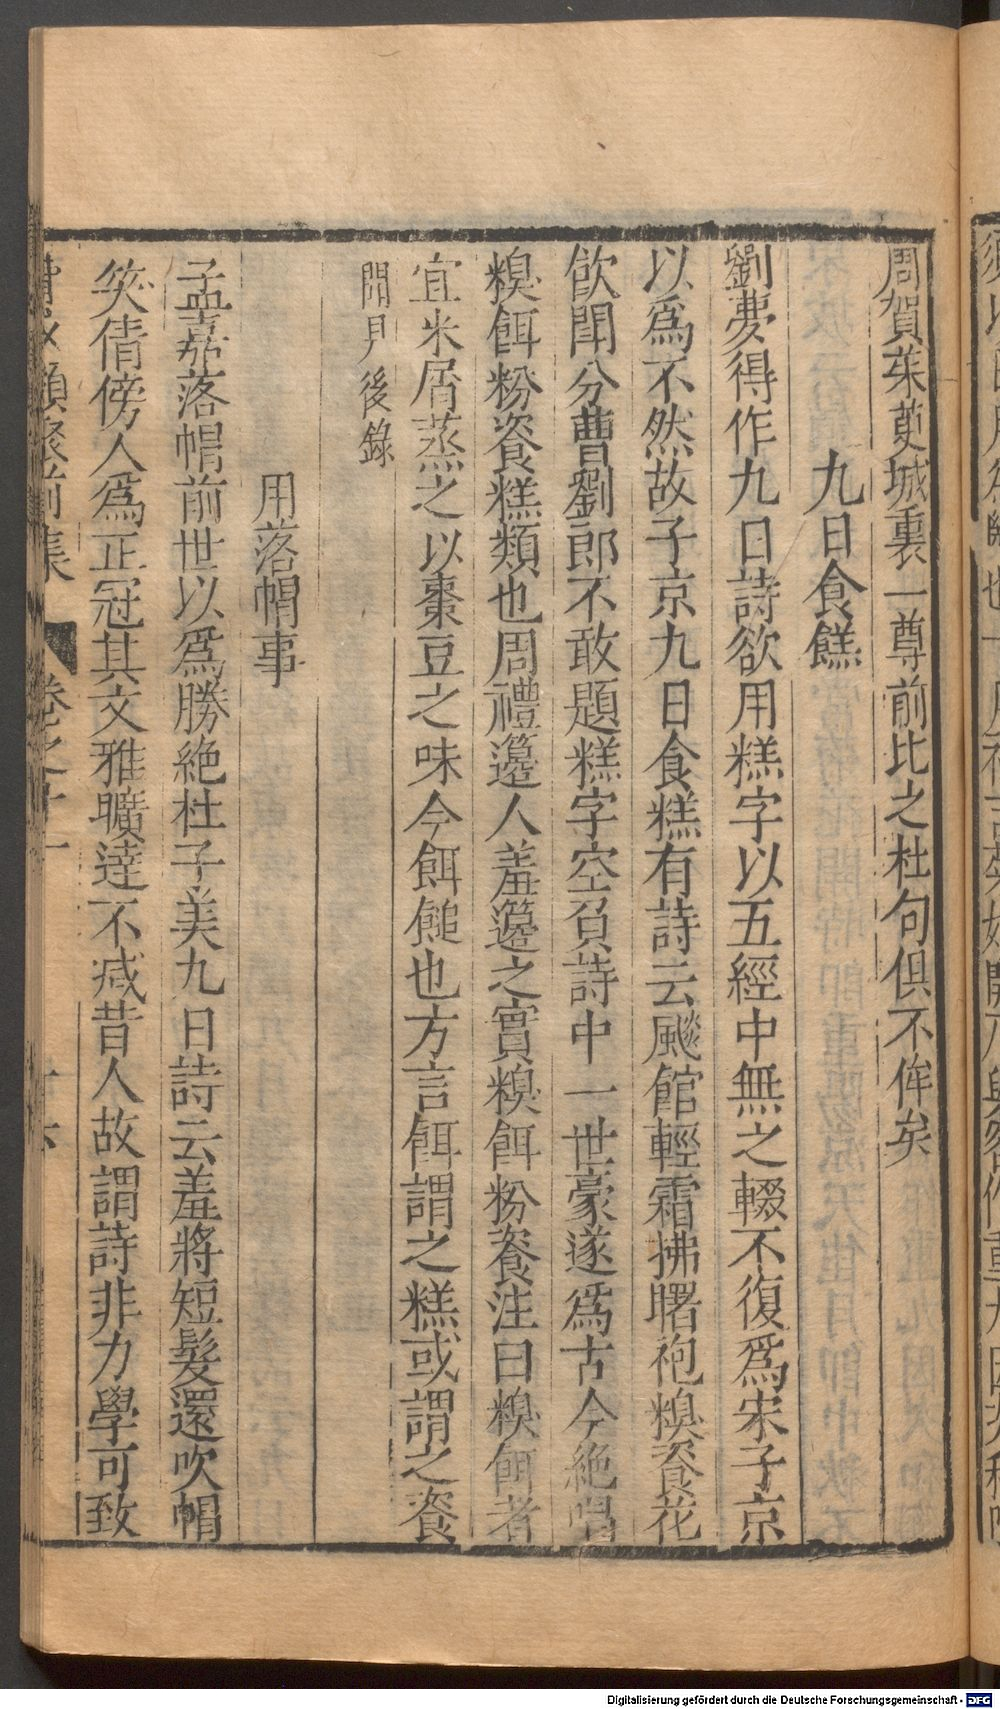 周賀茱萸城裏一尊前比之杜句俱不侔矣
九日食餻
劉夢得作九日詩欲用糕字以五經中無之輟不復爲宋子京
以爲不然故子京九日食糕有詩云飈館輕霜拂曙袍糗餈花
飲鬭分曹劉郎不敢題糕字空負詩中一世豪遂爲古今絶唱
糗餌粉餈糕類也周禮籩人羞籩之實糗餌粉餈注曰糗餌者
宜米屑蒸之以棗豆之味今餌䭔也方言餌謂之糕或謂之餈
聞見後錄
用落帽事
孟嘉落帽前世以爲勝絶杜子美九日詩云羞將短髮還吹帽
笑倩傍人爲正冠其文雅曠達不减昔人故謂詩非力學可致
前集 卷之十一
Digitalisierung gefördert durch die Deutsche Forschungsgemeinschaft - DFG